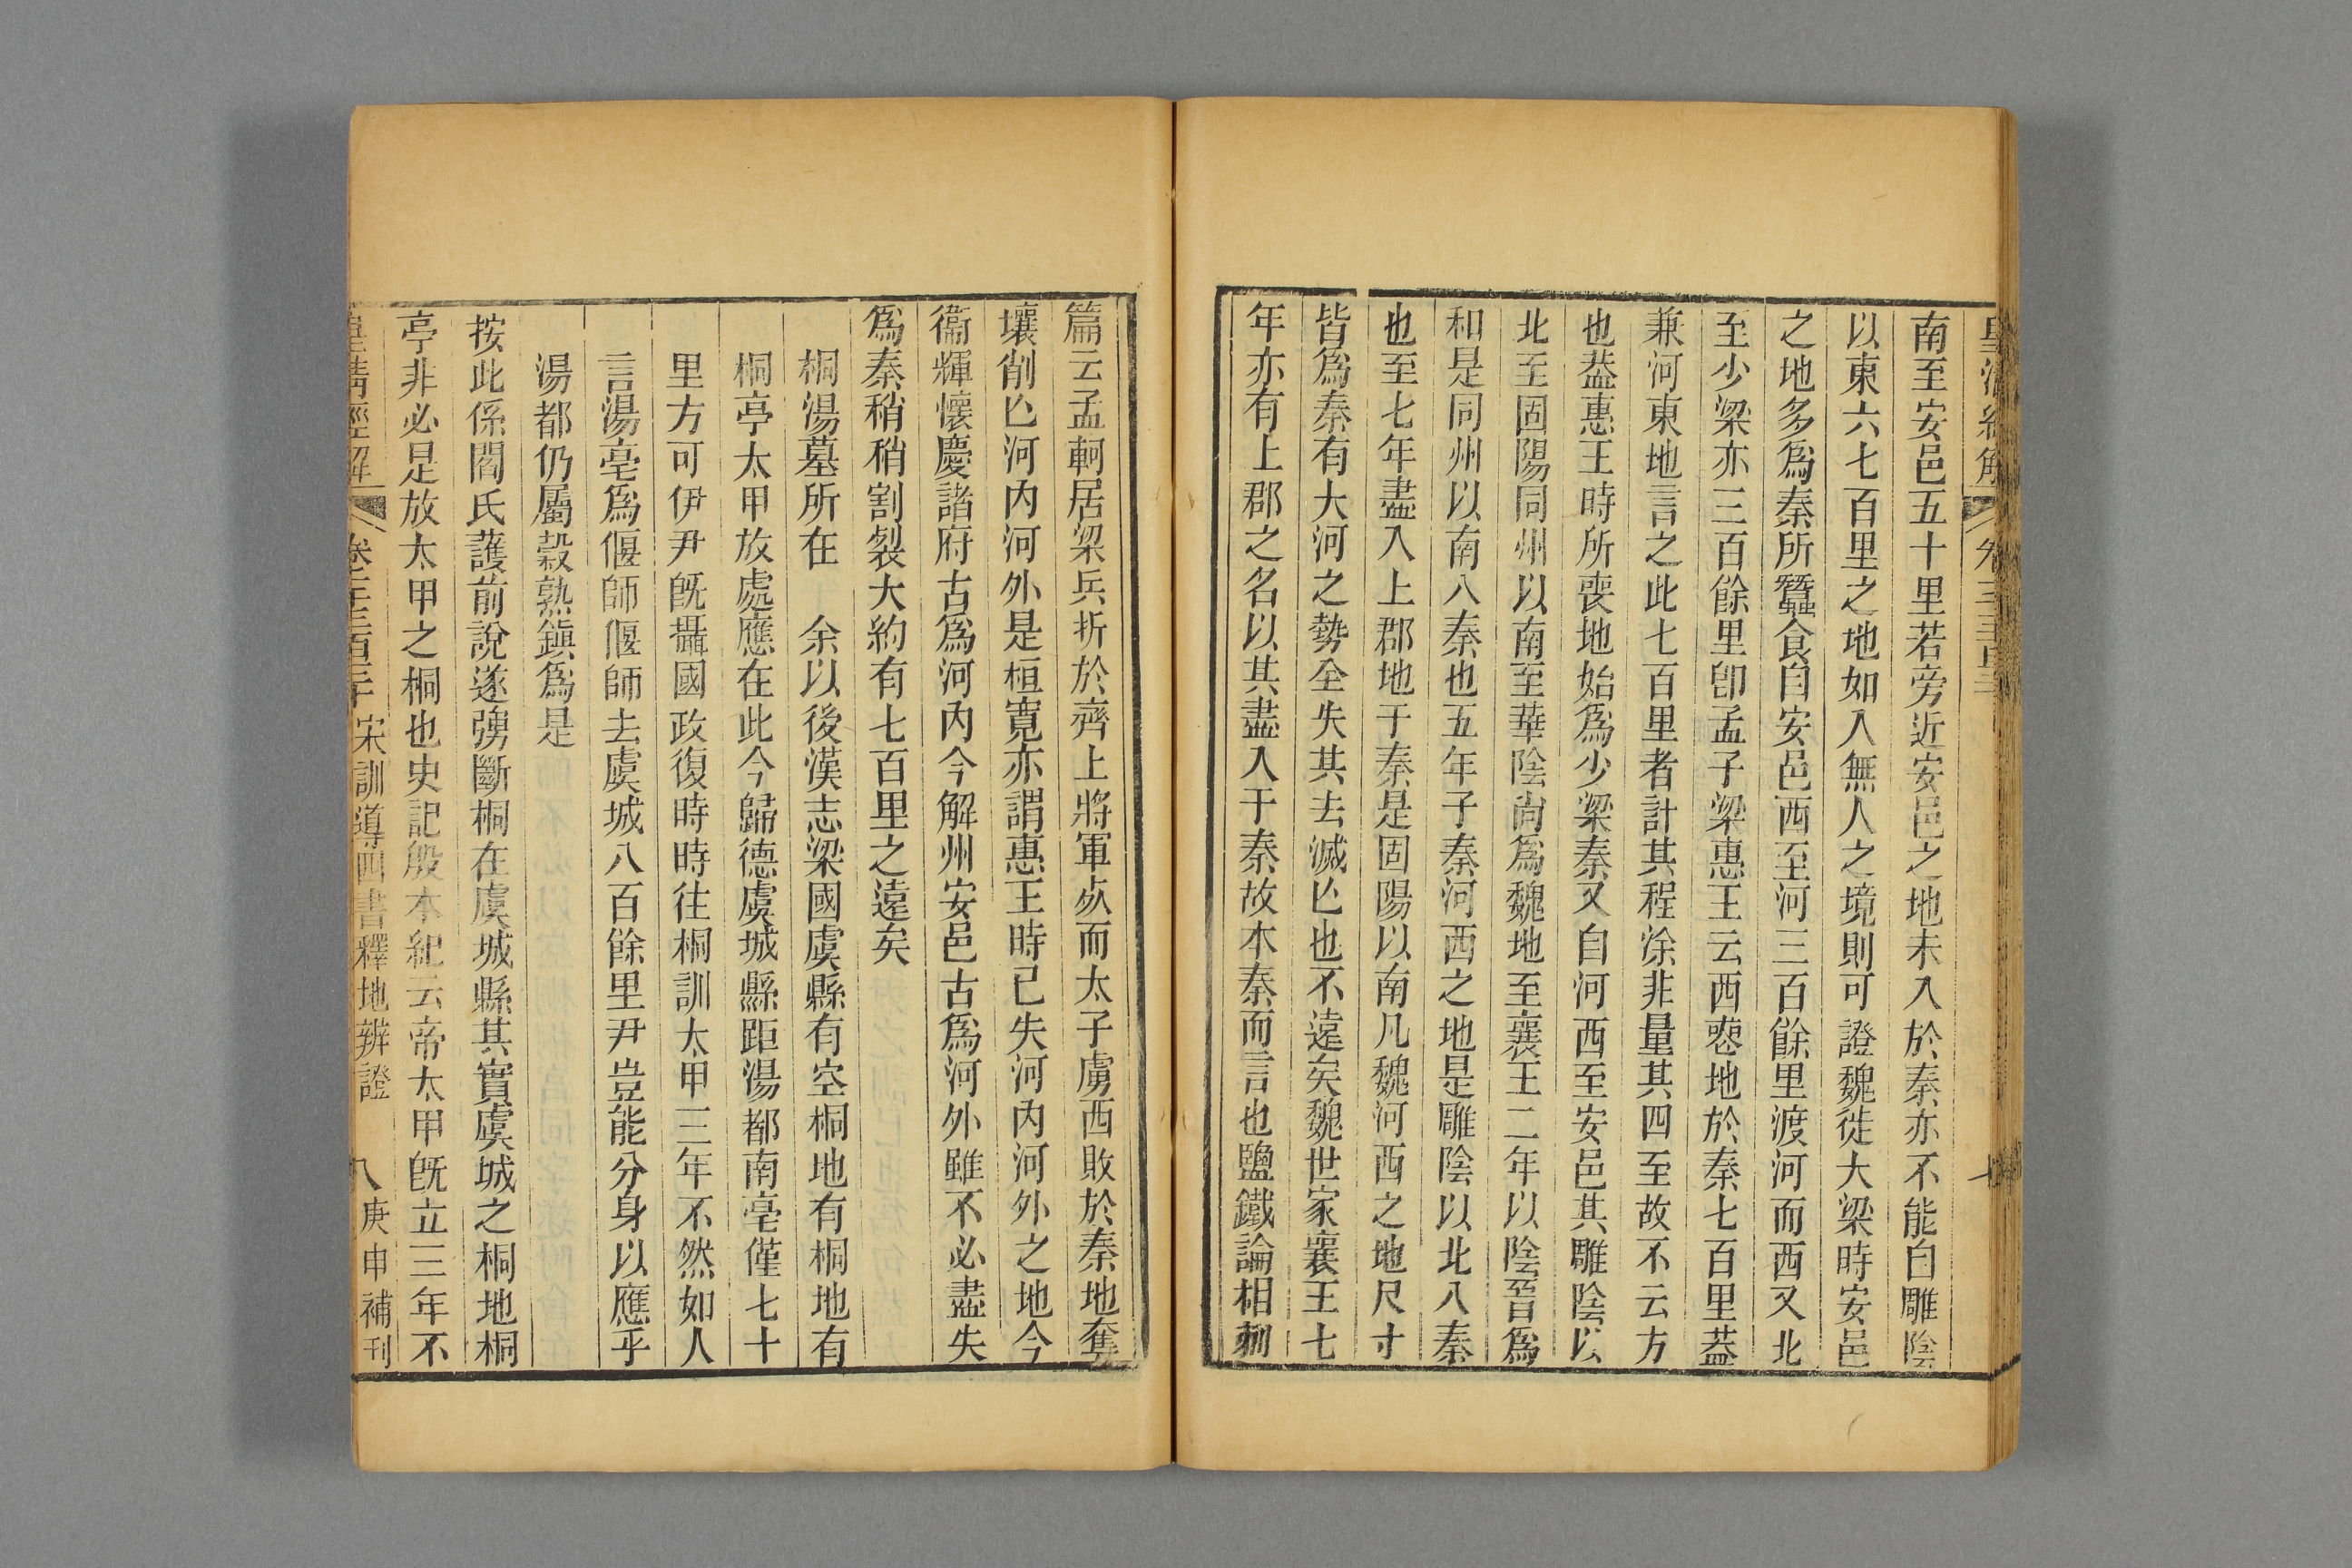 南至安邑五十里若旁近安邑之地未入於秦亦不能自雕陰
以東六七百里之地如入無人之境則可證魏徙大梁時安邑
之地多爲秦所蠶食自安邑西至河三百餘里渡河而西又北
至少梁亦三百餘里卽孟子梁惠王云西喪地於秦七百里葢
兼河東地言之此七百里者計其程涂非量其四至故不云方
也葢惠王時所喪地始爲少梁秦又自河西至安邑其雕陰以
北至固陽同州以南至華陰尙爲魏地至襄王二年以陰晉爲
和是同州以南入秦也五年予秦河西之地是雕陰以北入秦
也至七年盡入上郡地于秦是固陽以南凡魏河西之地尺寸
皆爲秦有大河之勢全失其去滅亾也不遠矣魏世家襄王七
年亦有上郡之名以其盡入于秦故本秦而言也鹽鐵論相刺
篇云孟軻居梁兵折於齊上將軍㱙而太子虜西敗於秦地奪
壤削亾河內河外是桓寬亦謂惠王時已失河內河外之地今
衞輝懷慶諸府古爲河內今解州安邑古爲河外雖不必盡失
爲秦稍稍割裂大約有七百里之遠矣
桐湯墓所在　余以後漢志梁國虞縣有空桐地有桐地有
桐亭太甲放處應在此今歸德虞城縣距湯都南亳僅七十
里方可伊尹旣攝國政復時時往桐訓太甲三年不然如人
言湯亳爲偃師偃師去虞城八百餘里尹豈能分身以應乎
湯都仍屬穀熟鎭爲是
按此係閻氏護前說遂彊斷桐在虞城縣其實虞城之桐地桐
亭非必是放太甲之桐也史記殷本紀云帝太甲旣立三年不
皇淸經解 卷三百三十 宋訓導四書釋地辨證 八 庚申補刊